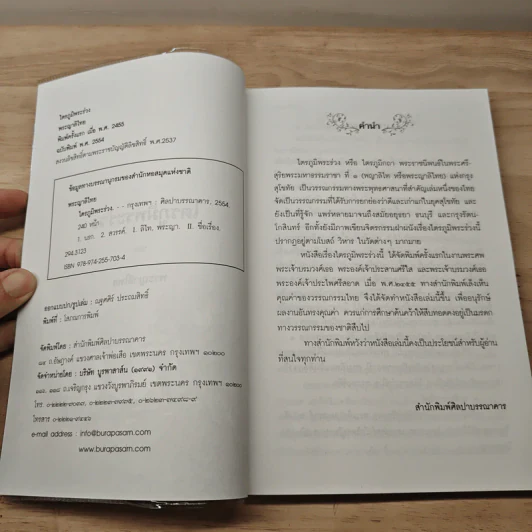 ไตรภูมิพระร่วง
พระญาลิไทย
พิมพ์ครั้งแรก เมื่อ พ.ศ. 2455
ฉบับพิมพ์ พ.ศ. 2554
สงวนลิขสิทธิ์ตามพระราชบัญญัติลิขสิทธิ์ พ.ศ.2537
ข้อมูลทางบรรณานุกรมของสำนักหอสมุดแห่งชาติ
พระญาลิไทย
ไตรภูมิพระร่วง. - - กรุงเทพฯ : ศิลปาบรรณาคาร, 2554.
240 หน้า.
1. นรก. 2. สวรรค์. I. ลิไท, พระญา. II. ชื่อเรื่อง.
294.3123
ISBN 978-974-255-703-4
ออกแบบปก/รูปเล่ม : ณฐศศิร์ ประถมสิทธิ์
พิมพ์ที่ : โสภณการพิมพ์
จัดพิมพ์โดย : สำนักพิมพ์ศิลปาบรรณาคาร
แขวงศาลเจ้าพ่อเสือ เขตพระนคร กรุงเทพฯ ๑๐๒๐๐
จัดจำหน่ายโดย : บริษัท บูรพาสาส์น (๑๙๙๑) จำกัด
ถ.เจริญกรุง แขวงวังบูรพาภิรมย์ เขตพระนคร กรุงเทพฯ ๑๐๒๐๐
โทร.
โทรสาร
e-mail address : info@burapasarn.com
www.burapasarn.com
คำนำ
ไตรภูมิพระร่วง หรือ ไตรภูมิกถา พระราชนิพนธ์ในพระศรี-
สุริยพระมหาธรรมราชา ที่ ๑ (พญาลิไท หรือพระญาลิไทย) แห่งกรุง
สุโขทัย เป็นวรรณกรรมทางพระพุทธศาสนาที่สำคัญเล่มหนึ่งของไทย
จัดเป็นวรรณกรรมที่ได้รับการยกย่องว่าดีและเก่าแก่ในยุคสุโขทัย และ
ยังเป็นที่รู้จัก แพร่หลายมาจนถึงสมัยอยุธยา ธนบุรี และกรุงรัตน-
โกสินทร์ อีกทั้งยังมีภาพเขียนจิตรกรรมฝาผนังเรื่องไตรภูมิพระร่วงนี้
ปรากฏอยู่ตามโบสถ์ วิหาร ในวัดต่างๆ มากมาย
หนังสือเรื่องไตรภูมิพระร่วงนี้ ได้จัดพิมพ์ครั้งแรกในงานพระศพ
พระเจ้าบรมวงศ์เธอ พระองค์เจ้าประสานศรีใส และพระเจ้าบรมวงศ์เธอ
พระองค์เจ้าประไพศรีสอาด เมื่อ พ.ศ.๒๔๕๕ ทางสำนักพิมพ์เล็งเห็น
คุณค่าของวรรณกรรมไทย จึงได้จัดทำหนังสือเล่มนี้ขึ้น เพื่ออนุรักษ์
ผลงานอันทรงคุณค่า ควรแก่การศึกษาค้นคว้าให้สืบทอดคงอยู่เป็นมรดก
ทางวรรณกรรมของชาติสืบไป
ทางสำนักพิมพ์หวังว่าหนังสือเล่มนี้คงเป็นประโยชน์สำหรับผู้อ่าน
ที่สนใจทุกท่าน
สำนักพิมพ์ศิลปาบรรณาคาร